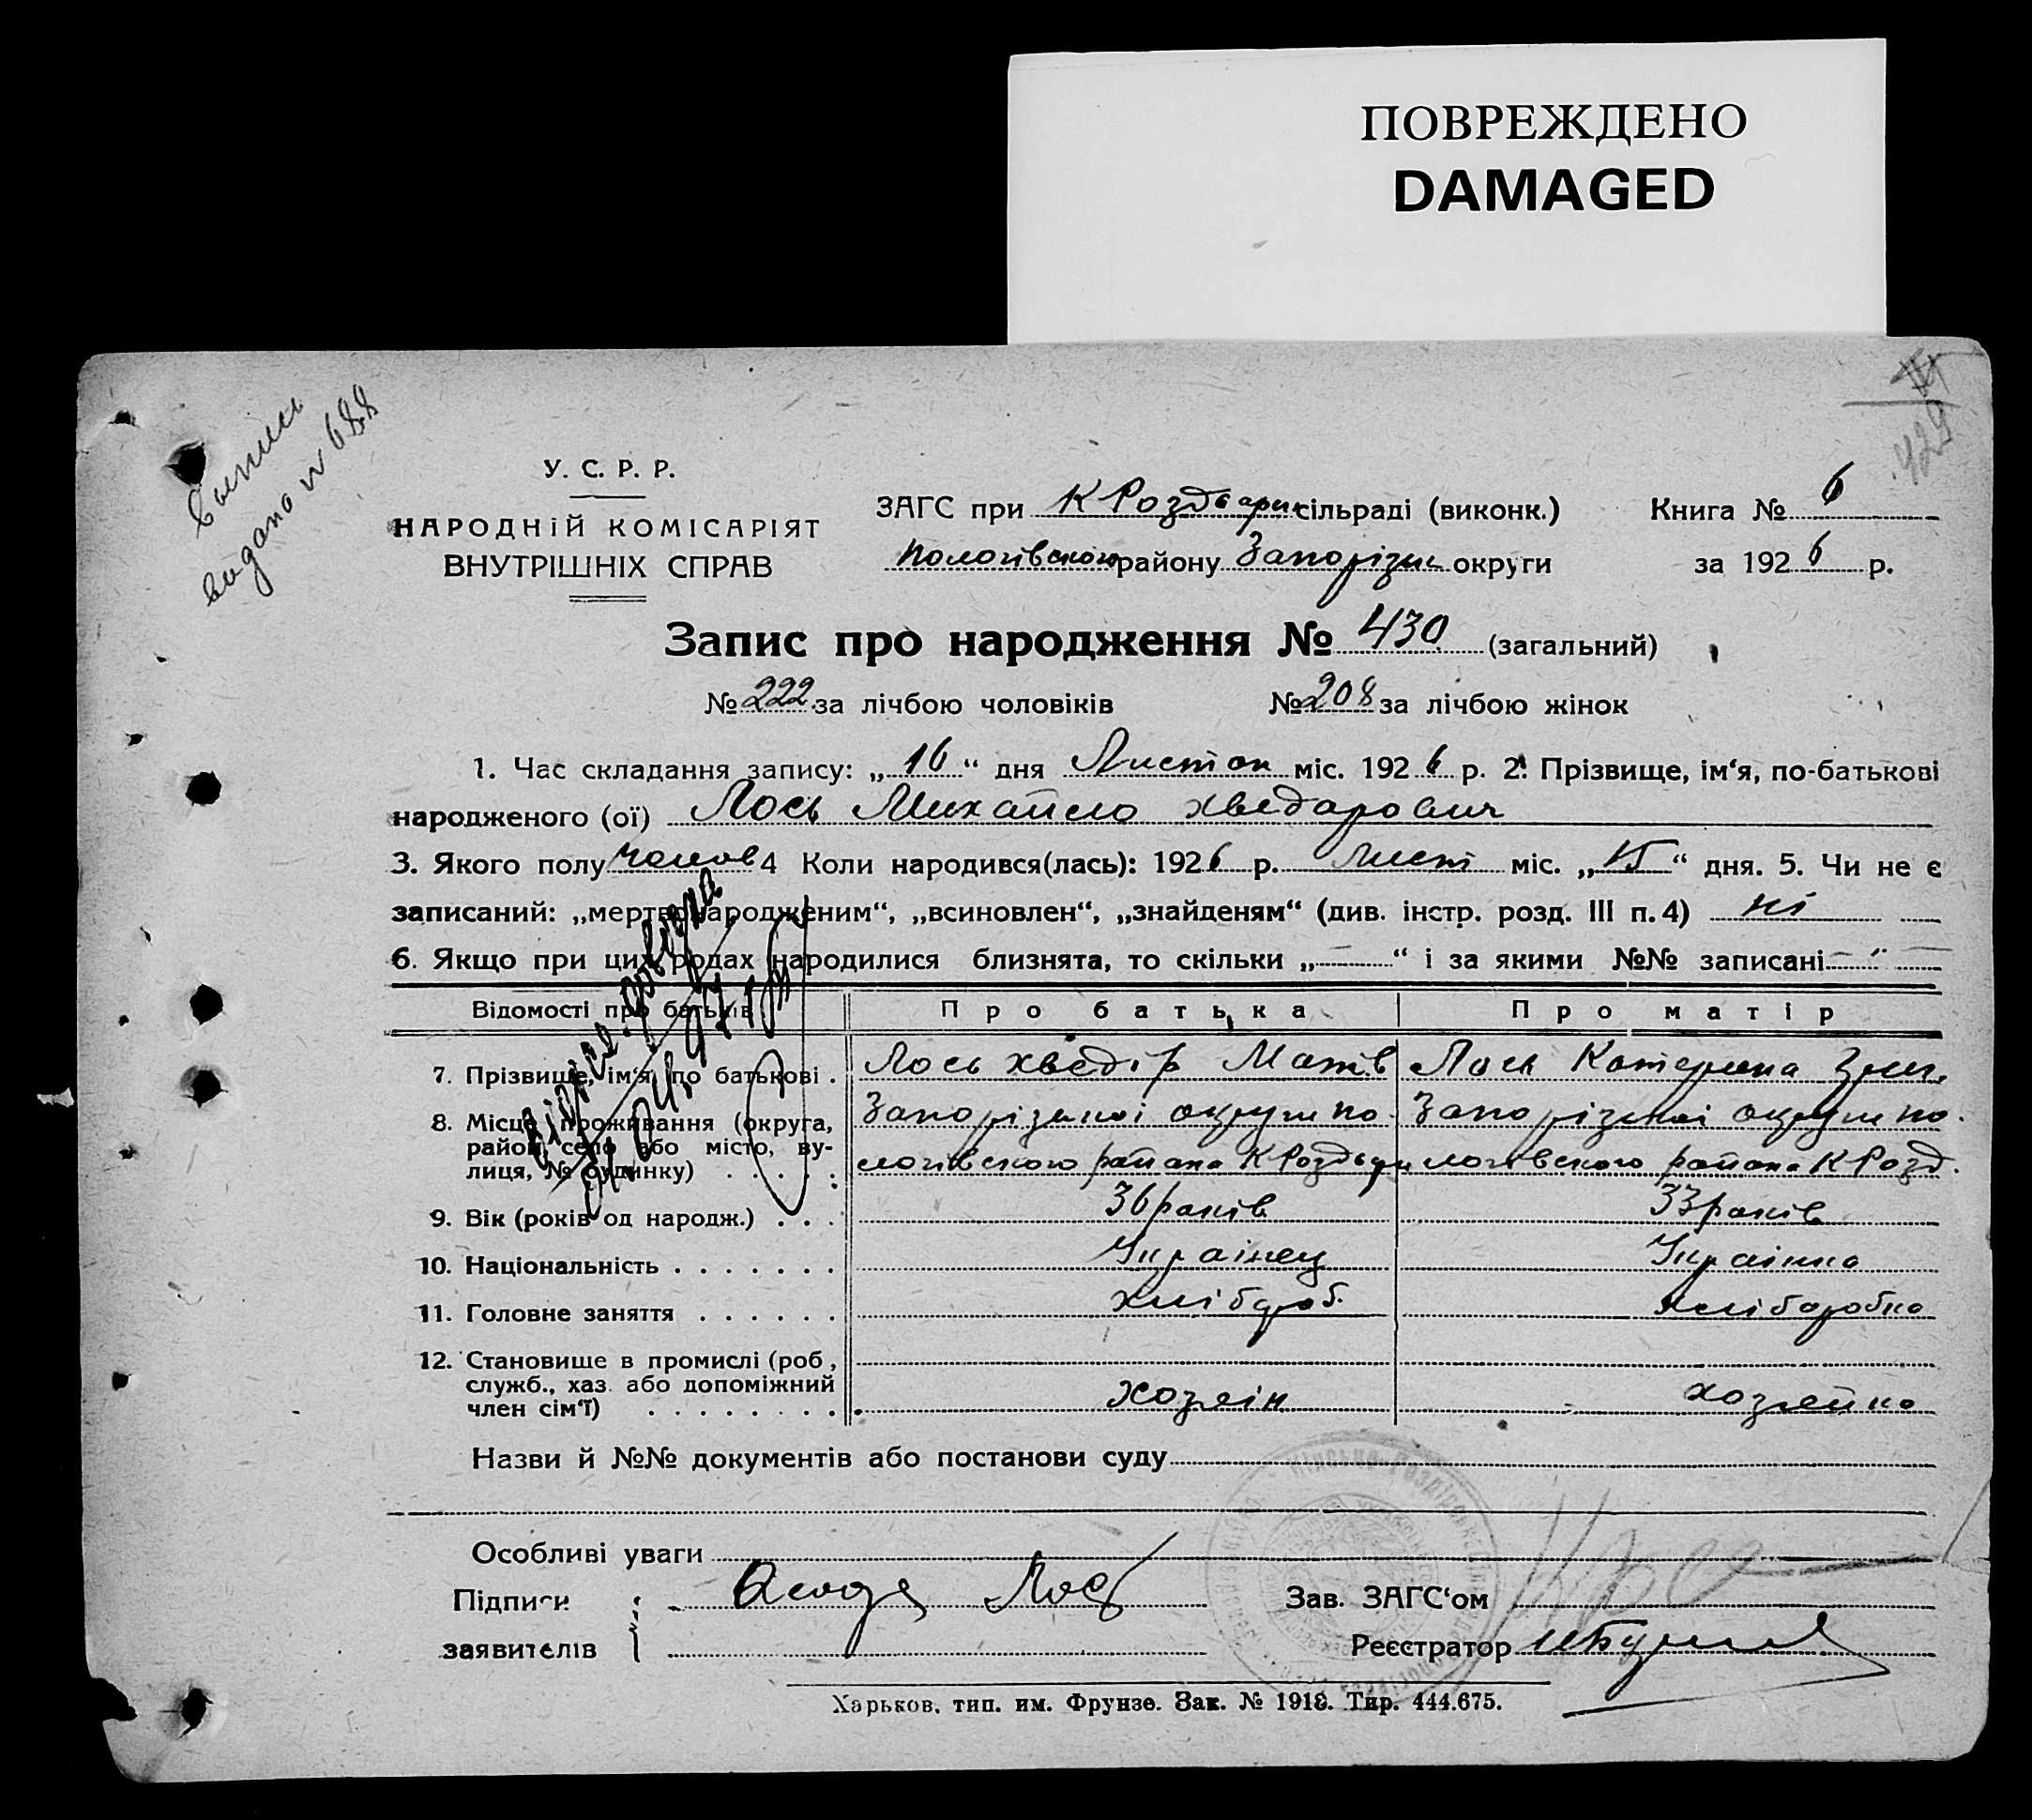 ПОВРЕЖДЕНО
DAMAGED
429
выпись
видано № 688
У. С. Р. Р.
НАРОДНІЙ КОМІСАРІЯТ
ВНУТРІШНІХ СПРАВ
ЗАГС при К Роздварк сільраді (виконк.)
Книга № 6
Пологівского району Запорізьк округи
за 1926 р.
Запис про народження № 430 (загальний)
№ 222 за лічбою чоловіків № 208 за лічбою жінок
1. Час складання запису: „16“ дня Листоп міс. 1926 р. 2. Прізвище, ім‘я, по-батькові
народженого (ої) Лось Михайло Хведарович
3. Якого полу чолов 4 Коли народився(лась): 1926 р. Лист міс. „15“ дня. 5. Чи не є
записаний: „мертвонародженим“, „всиновлен“, „знайденям“ (див. інстр. розд. III п. 4) ні
6. Якщо при цих родах народилися близнята, то скільки „—“ і за якими №№ записані „
Відомості про батьків Про батька Про матір
7. Прізвище, ім‘я, по батькові . Лось Хведір Матв Лось Катерина Григ.
8. Місце проживання (округа, Запорізькоі округи по- Запорізькоі округи по-
район, село або місто, ву-
лиця, № будинку) . . . . . логівського района К Роздвар логівського района К Розд.
9. Вік (років од народж.) . . . 36 раків 33 раків
10. Національність . . . . . . . Украінец Украінка
11. Головне заняття . . . . . . хлібороб. хлібаробка
12. Становище в промислі (роб,
служб., хаз. або допоміжний
член сім‘ї) . . . . . . . . хозяін хозяйка
Назви й №№ документів або постанови суду
Особливі уваги
Підписи Лось Зав. ЗАГС‘ом
заявителів Реєстратор
Харьков, тип. им. Фрунзе. Зак. № 1918. Тир. 444.675.